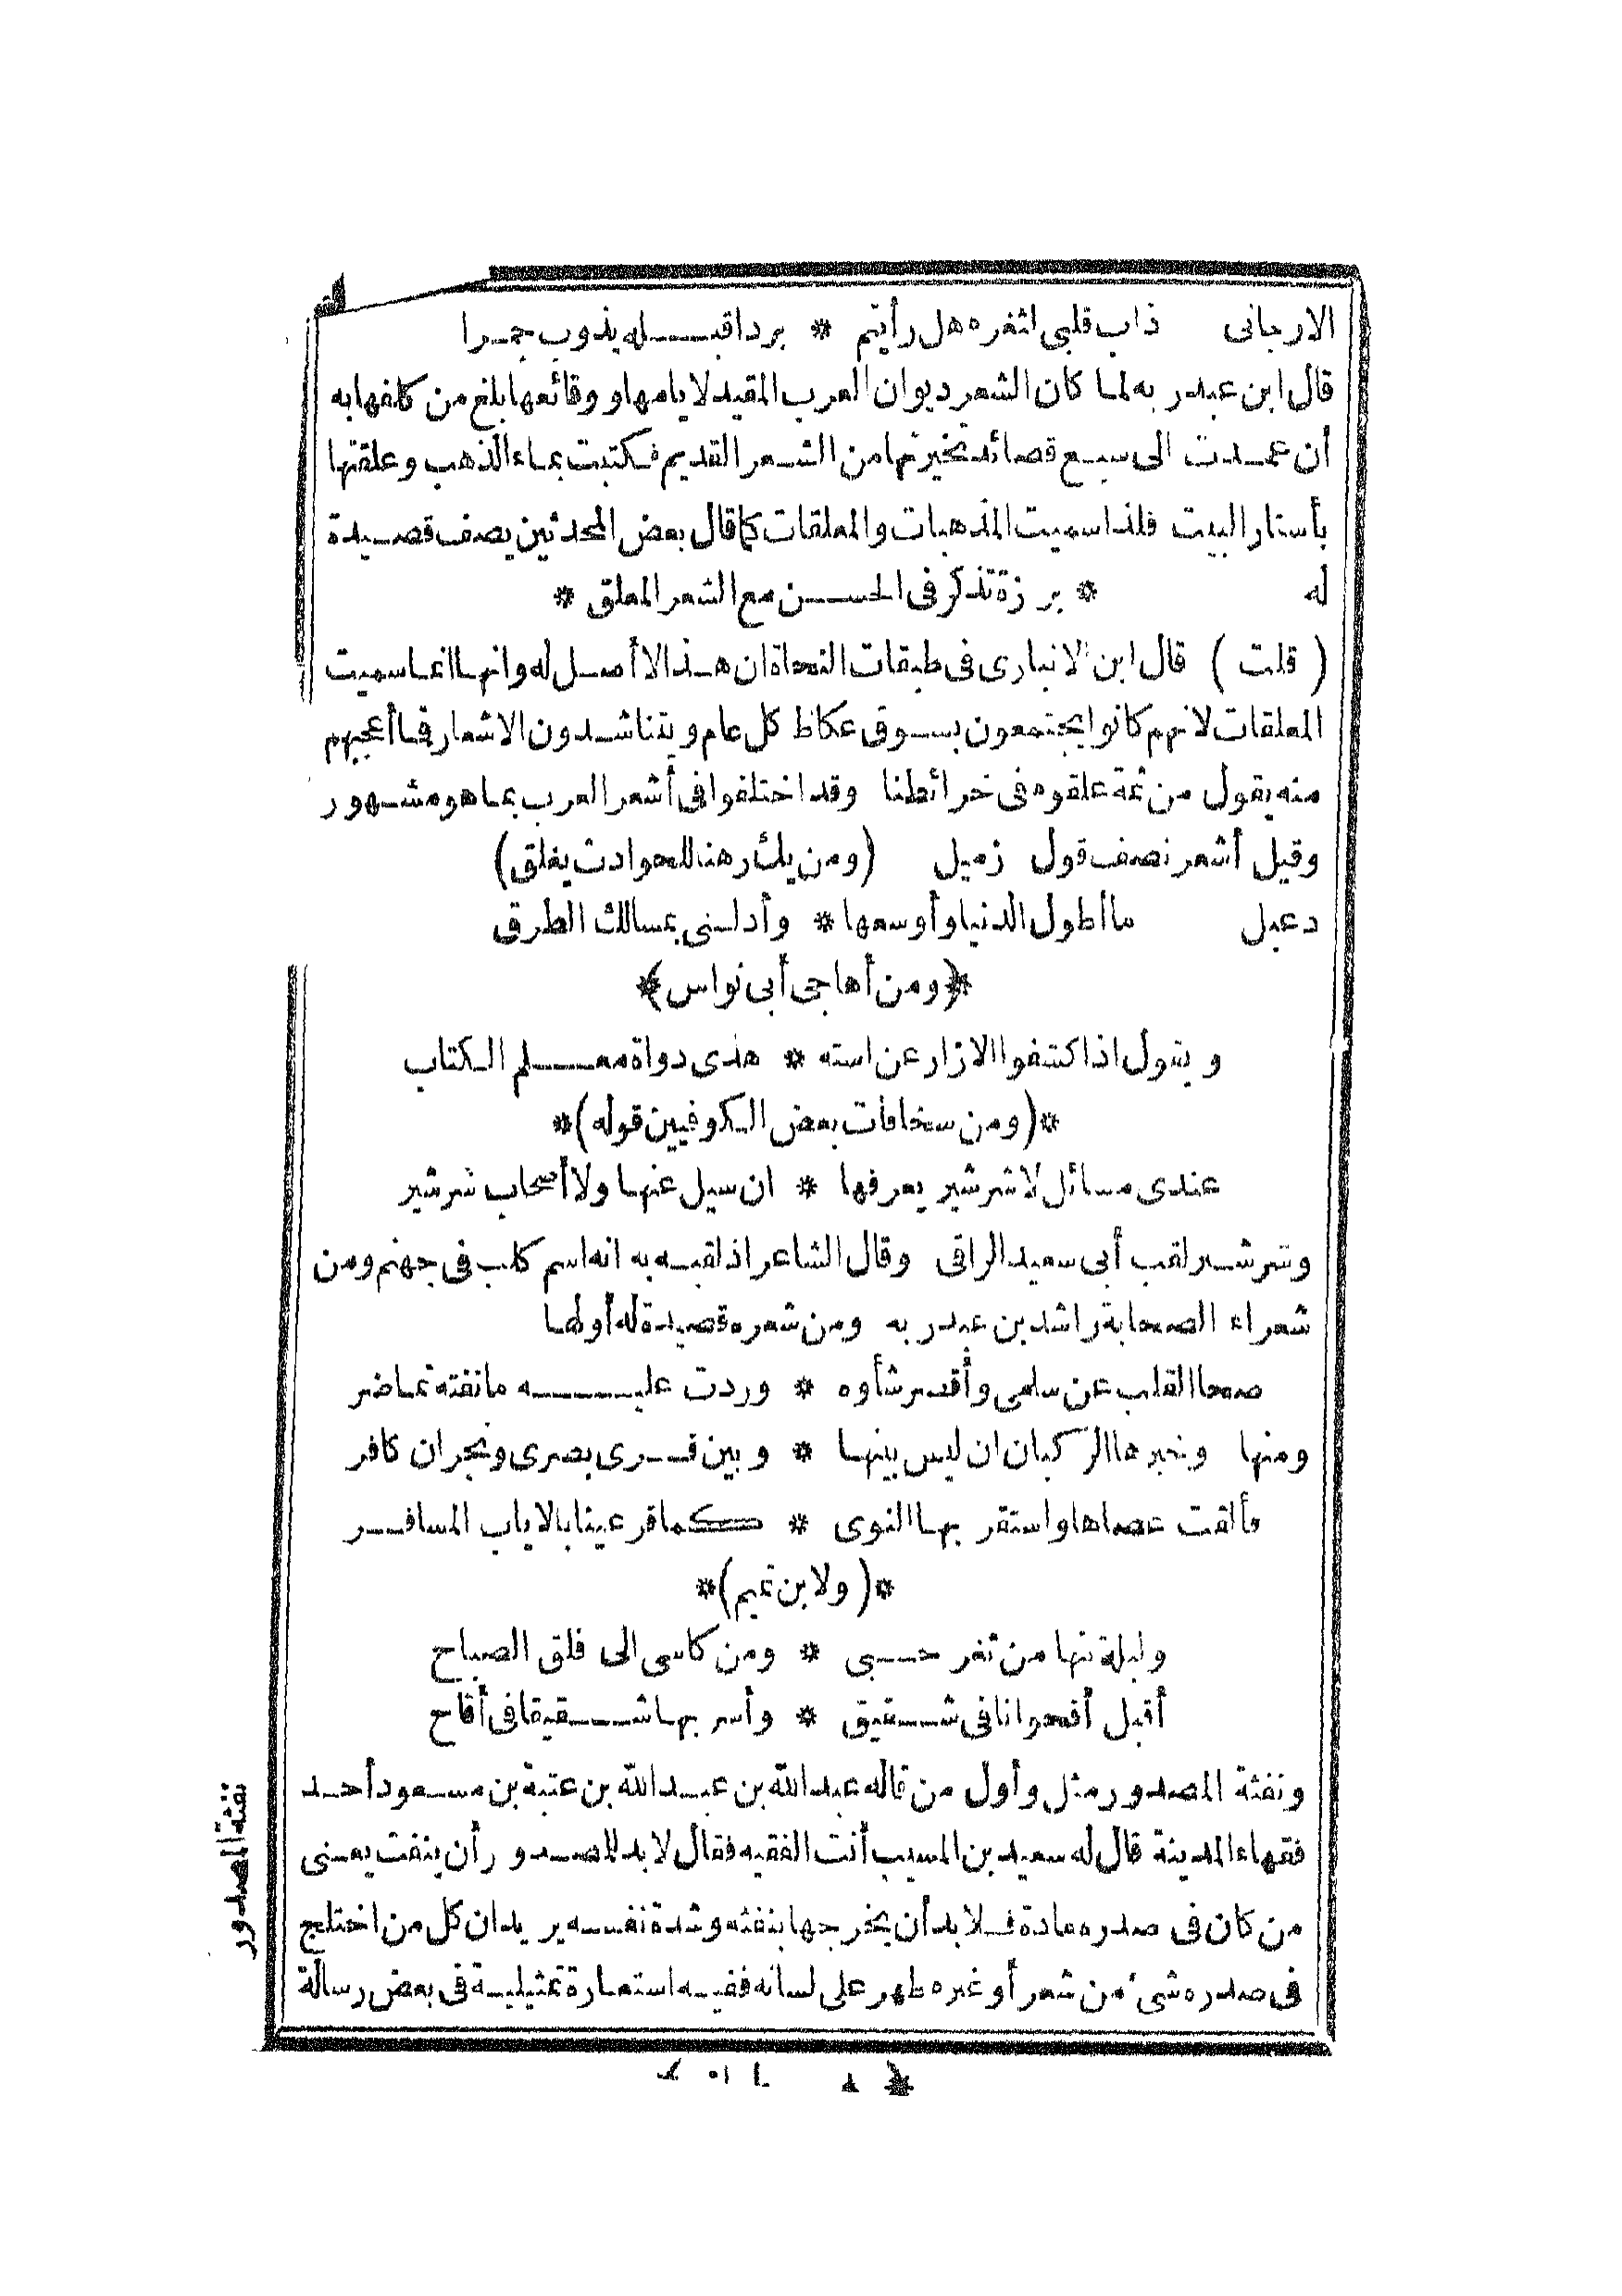 الارجانى ذاب قلبى لثغره هل رأيتم * بردا قبله يذوب جمرا
قال ابن عبدربه لما كان الشعر ديوان العرب المقيد لايامها ووقائعها بلغ من كلفها به
أن عمدت الى سبع قصائد تخيرتها من الشعر القديم فكتبت بماء الذهب وعلقتها
بأستار البيت فلذا سميت المذهبات والمعلقات كما قال بعض المحدثين يصف قصيدة
له * برزة تذكر فى الحسن مع الشعر المعلق *
( قلت ) قال ابن الانبارى فى طبقات النحاة ان هذا لا أصل له وانها انما سميت
المعلقات لانهم كانوا يجتمعون بسوق عكاظ كل عام ويتناشدون الاشعار فما أعجبهم
منه يقول من ثمة علقوه فى خرائطنا وقد اختلفوا فى أشعر العرب بما هو مشهور
وقيل أشعر نصف قول زميل (ومن يك رهنا للحوادث يغلق)
دعبل ما أطول الدنيا وأوسعها * وأدلنى بمسالك الطرق
*(ومن أهاجى أبى نواس)*
ويقول اذا كشفوا الازار عن استه * هذى دواة معلم الكتاب
*(ومن سخافات بعض الكوفيين قوله)*
عندى مسائل لا شرشير يعرفها * ان سيل عنها ولا أصحاب شرشير
وشرشير لقب أبى سعيد الراقى وقال الشاعر اذ لقبه به انه اسم كلب فى جهنم ومن
شعراء الصحابة راشد بن عبدربه ومن شعره قصيدة له أولها
صحا القلب عن سلمى وأقصر شأوه * وردت عليه ما نفته تماضر
ومنها وخبرها الركبان ان ليس بينها * وبين قرى بصرى ونجران كافر
فألقت عصاها واستقر بها النوى * كما قر عينا بالاياب المسافر
*(ولابن تميم)*
وليلة بتها من ثغر حبى * ومن كاسى الى فلق الصباح
أقبل أقحوانا فى شقيق * وأسر بها شقيقا فى أقاح
ونفثة المصدور مثل وأول من قاله عبدالله بن عبدالله بن عتبة بن مسعود أحد
فقهاء المدينة قال له سعيد بن المسيب أنت الفقيه فقال لابد للمصدور أن ينفث يعنى
من كان فى صدره مادة فلابد أن يخرجها بنفثه وشدة نفسه يريد ان كل من اختلج
فى صدره شئ من شعر أو غيره ظهر على لسانه ففيه استعارة تمثيلية فى بعض رسالة
نفثة المصدور